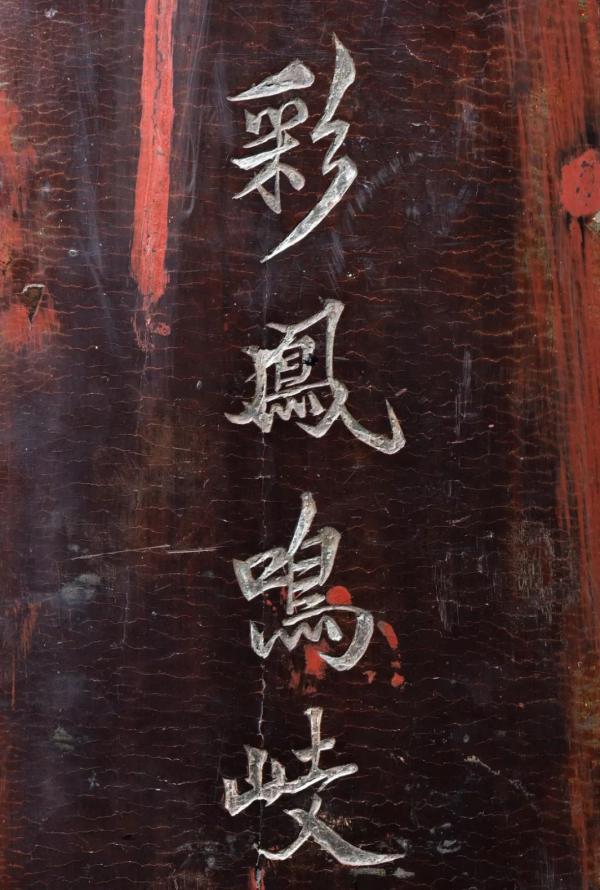 彩鳳鳴岐